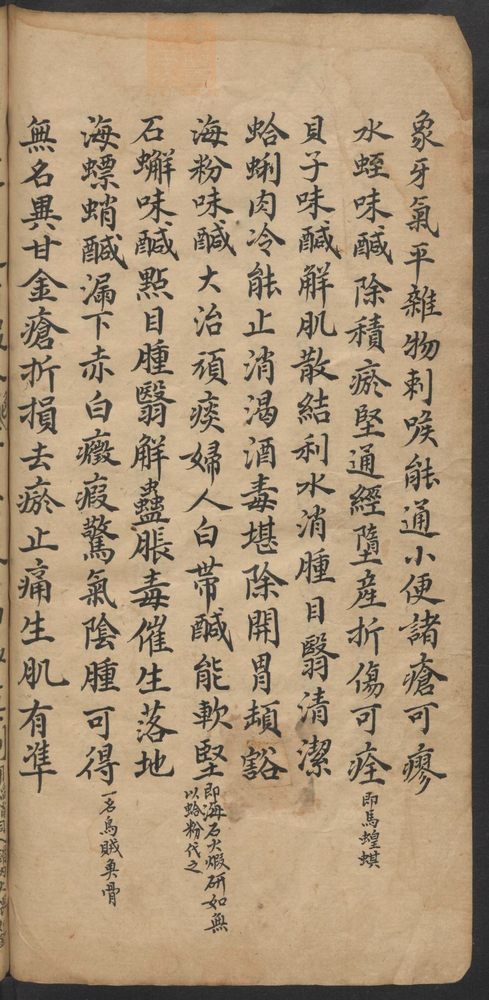 象牙氣平雜物刺喉能通小便諸瘡可瘳
水蛭味鹹除積瘀堅通經墮産折傷可痊 即馬蝗蜞
貝子味鹹解肌散結利水消腫目翳清潔
蛤蜊肉冷能止消渴酒毒堪除開胃頓豁
海粉味鹹大治頑痰婦人白帶鹹能軟堅 即海石火煅研如無
以蛤粉代之
石蠏味鹹點目腫翳解蠱脹毒催生落地
海螵蛸鹹漏下赤白癥瘕驚氣陰腫可得 一名烏賊魚骨
無名異甘金瘡折損去瘀止痛生肌有準